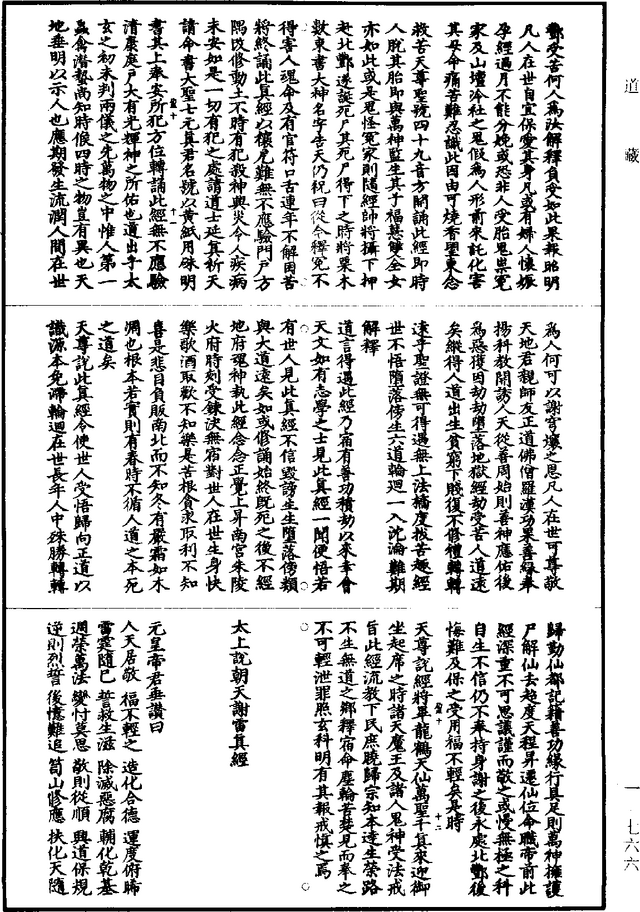 道藏
酆受苦何人為汝解釋負受如此果報昭明
凡人在世自宜保愛其身凡或有婦人懷娠
孕經過月不能分娩或恐非人受胎鬼祟冤
家及山壇冷社之鬼假為人形前來託化害
其母命痛苦難忍識此因由可燒香望東念
救苦天尊聖號四十九音方開誦此經即時
人脫其胎即與萬神監生其子福慧雙全女
亦如此或是鬼怪冤家則隨經師將攝下押
赴北酆遂誕死尸其死尸得下之時將粟木
數東書大神名字告天仍祝曰從今釋冤不
得害人魂命及有官符口舌連年不解因苦
將終誦此真經以禳厄難無不應驗門戶方
隅改修動土不時有犯救神與災令人疾病
未安如是一切有犯之處請道士延其祈天
請命書大聖七元真君名號以黃紙用硃明
書其上奉安所犯方位轉誦此經無不應驗
清康庭戶大有光輝神之所佑也道出乎太
玄之初未判兩儀之先萬物之中惟人第一
蟲禽潛蟄尚知時候四時之物豈有異也天
地垂明以示人也應期發生流潤人間在世
為人何可以謝穹壤之恩凡人在世可尊敬
天地君親師友正道佛僧羅漢功果善緣奉
揚科教開誘人天從善周始則善神應佑後
為惡復因劫劫墮落地獄經劫受苦人道遠
矣縱得人道出生貧窮下賤復不修禮轉轉
遠乎聖證無可得遇無上法橋度拔苦趣經
世不悟墮落傍生六道輪迴一入沈淪難期
解釋
道言得遇此經乃宿有善功積劫以來幸會
天文如有志學之士見此真經一聞便悟若
有世人見此真經不信毀謗生生墮落傍類
與大道遠矣如或修誦始終既死之後不經
地府魂神執此經念念正覺上昇南宮朱陵
火府時刻受鍊決無宿對世人在世生身快
樂歌酒取歡不知樂是苦根貪求取利不知
喜是悲目負販南北而不知冬有嚴霜如木
凋也根本若實則有春時不循人道之本死
之道矣
天尊說此真經令使世人受悟歸向正道以
識源本免滯輪迴在世長年人中殊勝轉轉
歸勤仙都記籍善功緣行具足則萬神擁護
尸解仙去超度天程昇遷仙位命職帝前此
經深重不可思議謹而敬之或慢無極之科
自生不信仍不奉持身謝之後永處北酆後
悔難及保之受用福不輕矣是時
天尊說經將畢龍鶴天仙萬聖千真來迎御
坐起席之時諸天魔王及諸人鬼神受法戒
旨此經流教下民庶曉歸宗知本達生榮路
不生無道之鄉釋宿命塵輪苦楚見而奉之
不可輕泄罪照玄科明有其報戒慎之焉
太上說朝天謝雷真經
元皇帝君垂讚曰
人天居敬　福不輕之　造化合德　運度俯晞
雷霆隨已　誓救生滋　除滅惡腐　輔化乾基
週榮萬法　變付莫思　敬則從順　興道保規
逆則烈誓　後憶難追　筍山修應　扶化天隨
一一七六六